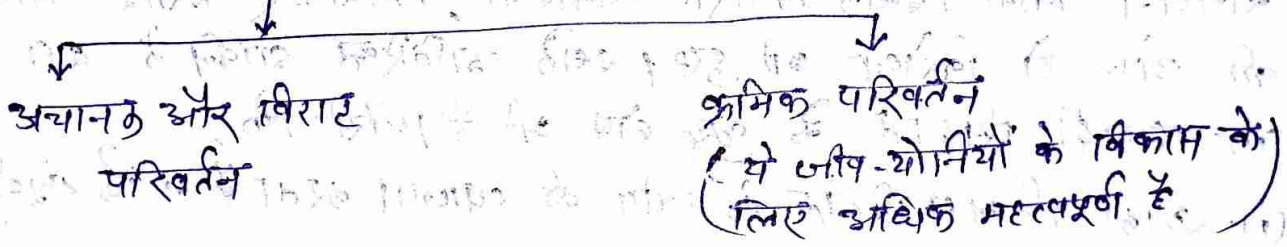 अचानक और विराट
परिवर्तन
क्रमिक परिवर्तन
(ये जीव-योनियों के विकास के
लिए अधिक महत्वपूर्ण है.)